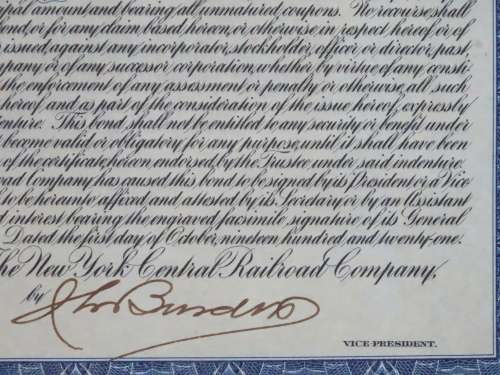 al account and bearing all unmatured coupons. No recourse shall
ond, or for any claim based hereon, or otherwise, in respect hereof or of
issued, against any incorporator, stockholder, officer or director, past,
pany or of any successor corporation, whether by virtue of any consti-
the enforcement of any assessment or penalty or otherwise, all such
hereof and as part of the consideration of the issue hereof, expressly
enture. This bond shall not be entitled to any security or benefit under
become valid or obligatory for any purpose until it shall have been
of the certificate hereon endorsed by the Trustee under said indenture.
oad Company has caused this bond to be signed by its President or a Vice
to be hereunto affixed and attested by its Secretary or by an Assistant
d interest bearing the engraved facsimile signature of its General
Dated the first day of October, nineteen hundred and twenty-one.
The New York Central Railroad Company,
by
VICE PRESIDENT.